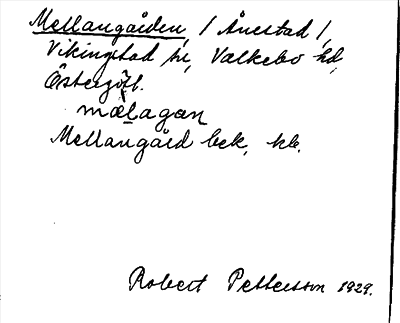 Mellangården, / Ånestad /,
Vikingstad sn, Valkebo hd,
Östergötl.
mælagan
Mellangård bek, kb.
Robert Pettersson 1929.